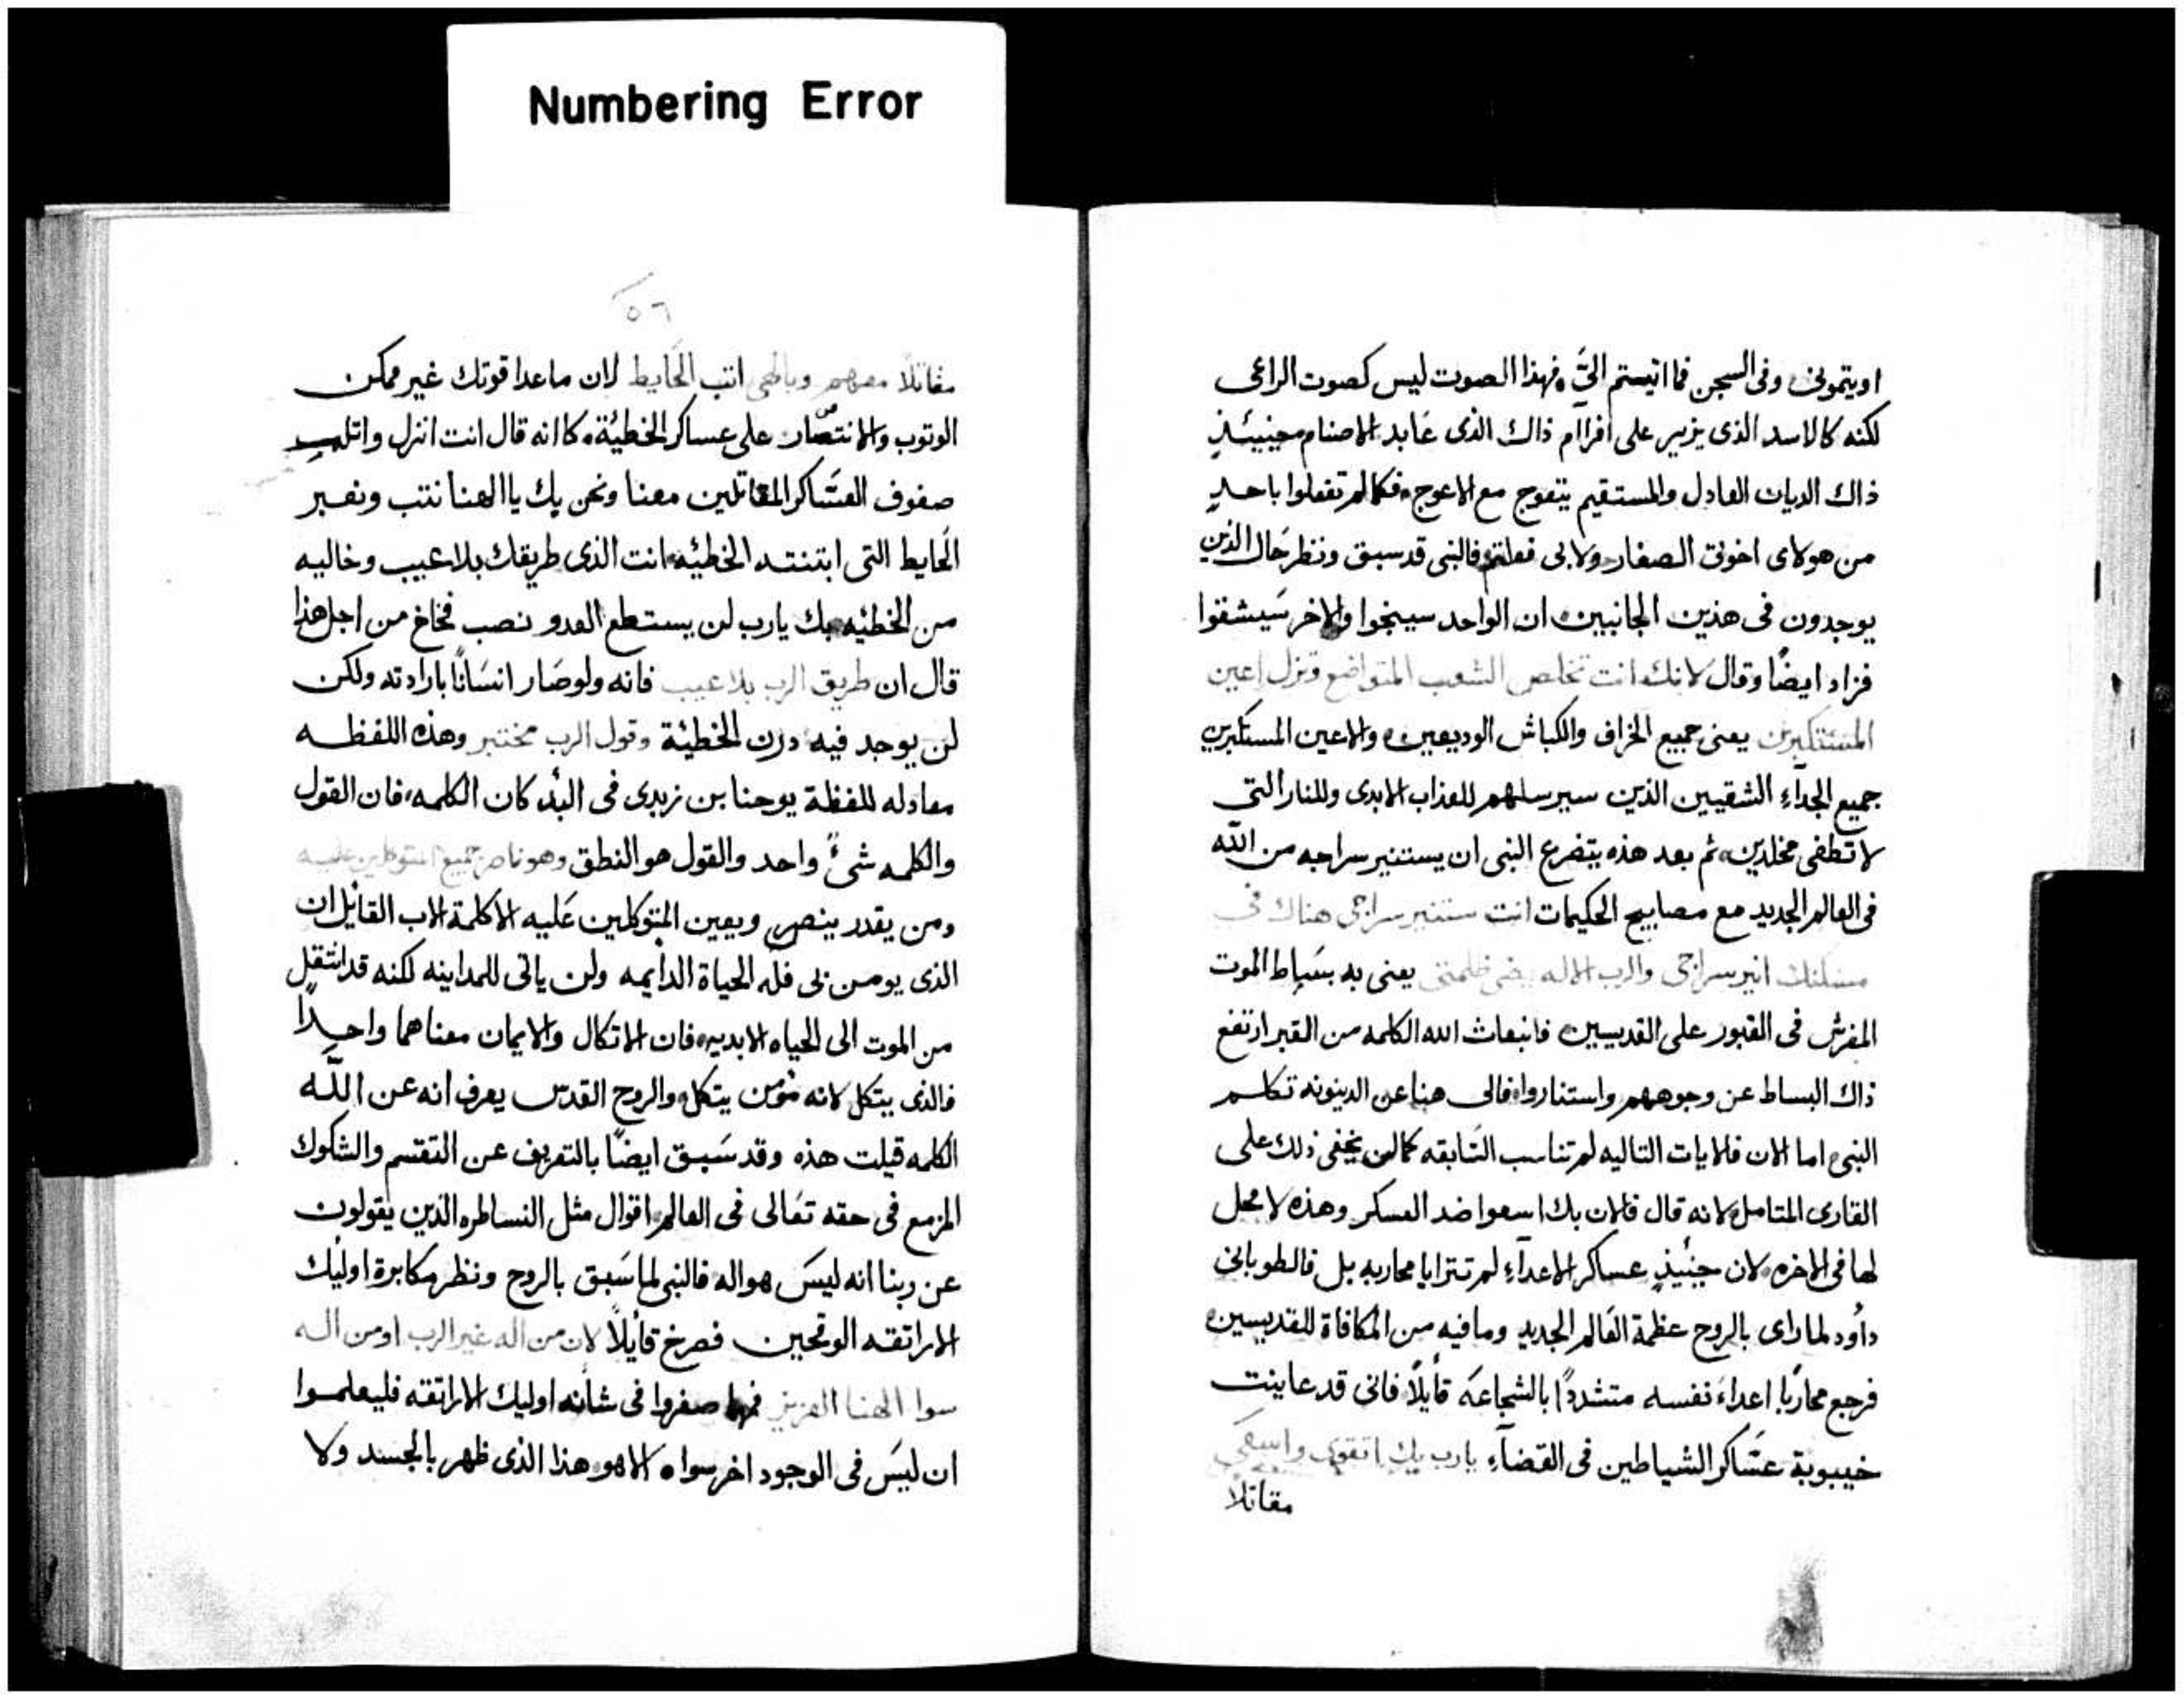 Numbering Error
اويتمونى وفى السجن فما اتيستم الىَّ فهذا الصوت ليس كصوت الراعى
لكنه كالاسد الذى يزير على افرآم ذاك الذى عَابد الاصنام حينيئذٍ
ذاك الديان العادل والمستقيم يتعوج مع الاعوج فكما لم تفعلوا باحدٍ
من هولاى اخوتى الصغار ولا بى فعلتم فالنبى قد سبق ونظر حَال الذين
يوجدون فى هذين الجانبين ان الواحد سينجوا والاخر سَيشقوا
فزاد ايضًا وقال لانك انت تخلص الشعب المتواضع وتزل اعين
المستكبرين يعنى جميع الخراف والكباش الوديعين والاعين المستكبرين
جميع الجدآء الشقيين الذين سيرسلهم للعذاب الابدى وللنار التى
لا تطفى مخلدين ثم بعد هذه يتضرع النبى ان يستنير سراجه من الله
فى العالم الجديد مع مصابيح الحكيمات انت ستنير سراجى هناك فى
مسكنك انير سراجى والرب الاله يضى ظلمتى يعنى به بسَاط الموت
المفرش فى القبور على القديسين فانبعاث الله الكلمه من القبر ارتفع
ذاك البساط عن وجوههم واستناروا فالى هنا عن الدينونه تكلم
النبى اما الان فالايات التاليه لم تناسب السَابقه كما لن يخفى ذلك على
القارى المتامل لانه قال فالان بك اسعوا ضد العسكر وهذه لا محل
لها فى الاخره لان حينيذٍ عساكر الاعدآء لم تترايا محاربه بل فالطوبانى
داوُد لما راى بالروح عظمة العَالم الجديد وما فيه من المكافاة للقديسين
فرجع محاربًا اعداءَ نفسه متشددًا بالشجاعَه قايلًا فانى قد عاينت
خيبوبة عسَاكر الشياطين فى القضآء يارب بك اتقوى واسعى
مقاتلا
٥٦
مقاتلًا معهم وبالهى اثب الحَايط لان ماعدا قوتك غير ممكن
الوثوب والانتصَار على عساكر الخطيَة كما انه قال انت انزل واتلم
صفوف العسَاكر المقاتلين معنا ونحن بك يا الهنا نثب ونعبر
الحَايط التى ابتنتـه الخطيئه انت الذى طريقك بلا عيب وخاليه
من الخطيئه بك يارب لن يستطع العدو نصب فخاخ من اجل هذا
قال ان طريق الرب بلا عيب فانه ولو صَار انسَانًا بارادته ولكن
لن يوجد فيه درن الخطيئة وقول الرب مختبر وهذه اللفظـه
معادله للفظة يوحنا بن زبدى فى البدُ كان الكلمه فان القول
والكلمه شىً واحد والقول هو النطق وهو ناصر جميع المتوكلين عليه
ومن يقدر ينصر ويعين المتوكلين عَليه الا كلمة الاب القايل ان
الذى يومن بى فله الحياة الدايمه ولن ياتى للمداينه لكنه قد انتقل
من الموت الى الحياه الابديه فان الاتكال والايمان معناهما واحدًا
فالذى يتكل لانه مُومن يتكل والروح القدس يعرف انه عن اللّه
الكلمه قيلت هذه وقد سَبق ايضًا بالتعريف عن التقسم والشكوك
المزمع فى حقه تعَالى فى العالم اقوال مثل النساطره الذين يقولون
عن ربنا انه ليسَ هو اله فالنبى لما سَبق بالروح ونظر مكابرة اوليك
الاراتقه الوقحين فصرخ قايلًا لان من اله غير الرب اومن اله
سوا الهنا العزيز صفروا فى شانه اوليك الاراتقه فليعلموا
ان ليسَ فى الوجود اخر سواه الا هو هذا الذى ظهر بالجسد ولا